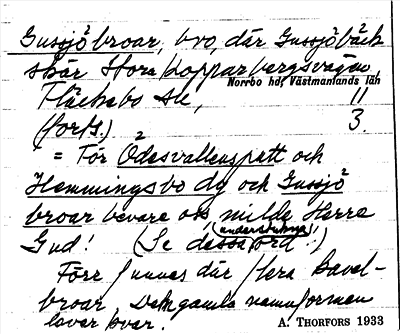 Gussjöbroar, bro, där Gussjöbäck
skär Stora Kopparbergsvägen,
Norrbo hd, Västmanlands län
Fläckebo sn, 11
(forts.) 3.
= För Ödesvallenspett och
Hemmingsbo dy och Gussjö
broar bevare oss milde Herre
(understrukna)
Gud! (Se dessa ord!)
Förr funnes där flera kavel-
broar. Den gamla namnformen
lever kvar.
A. THORFORS 1933